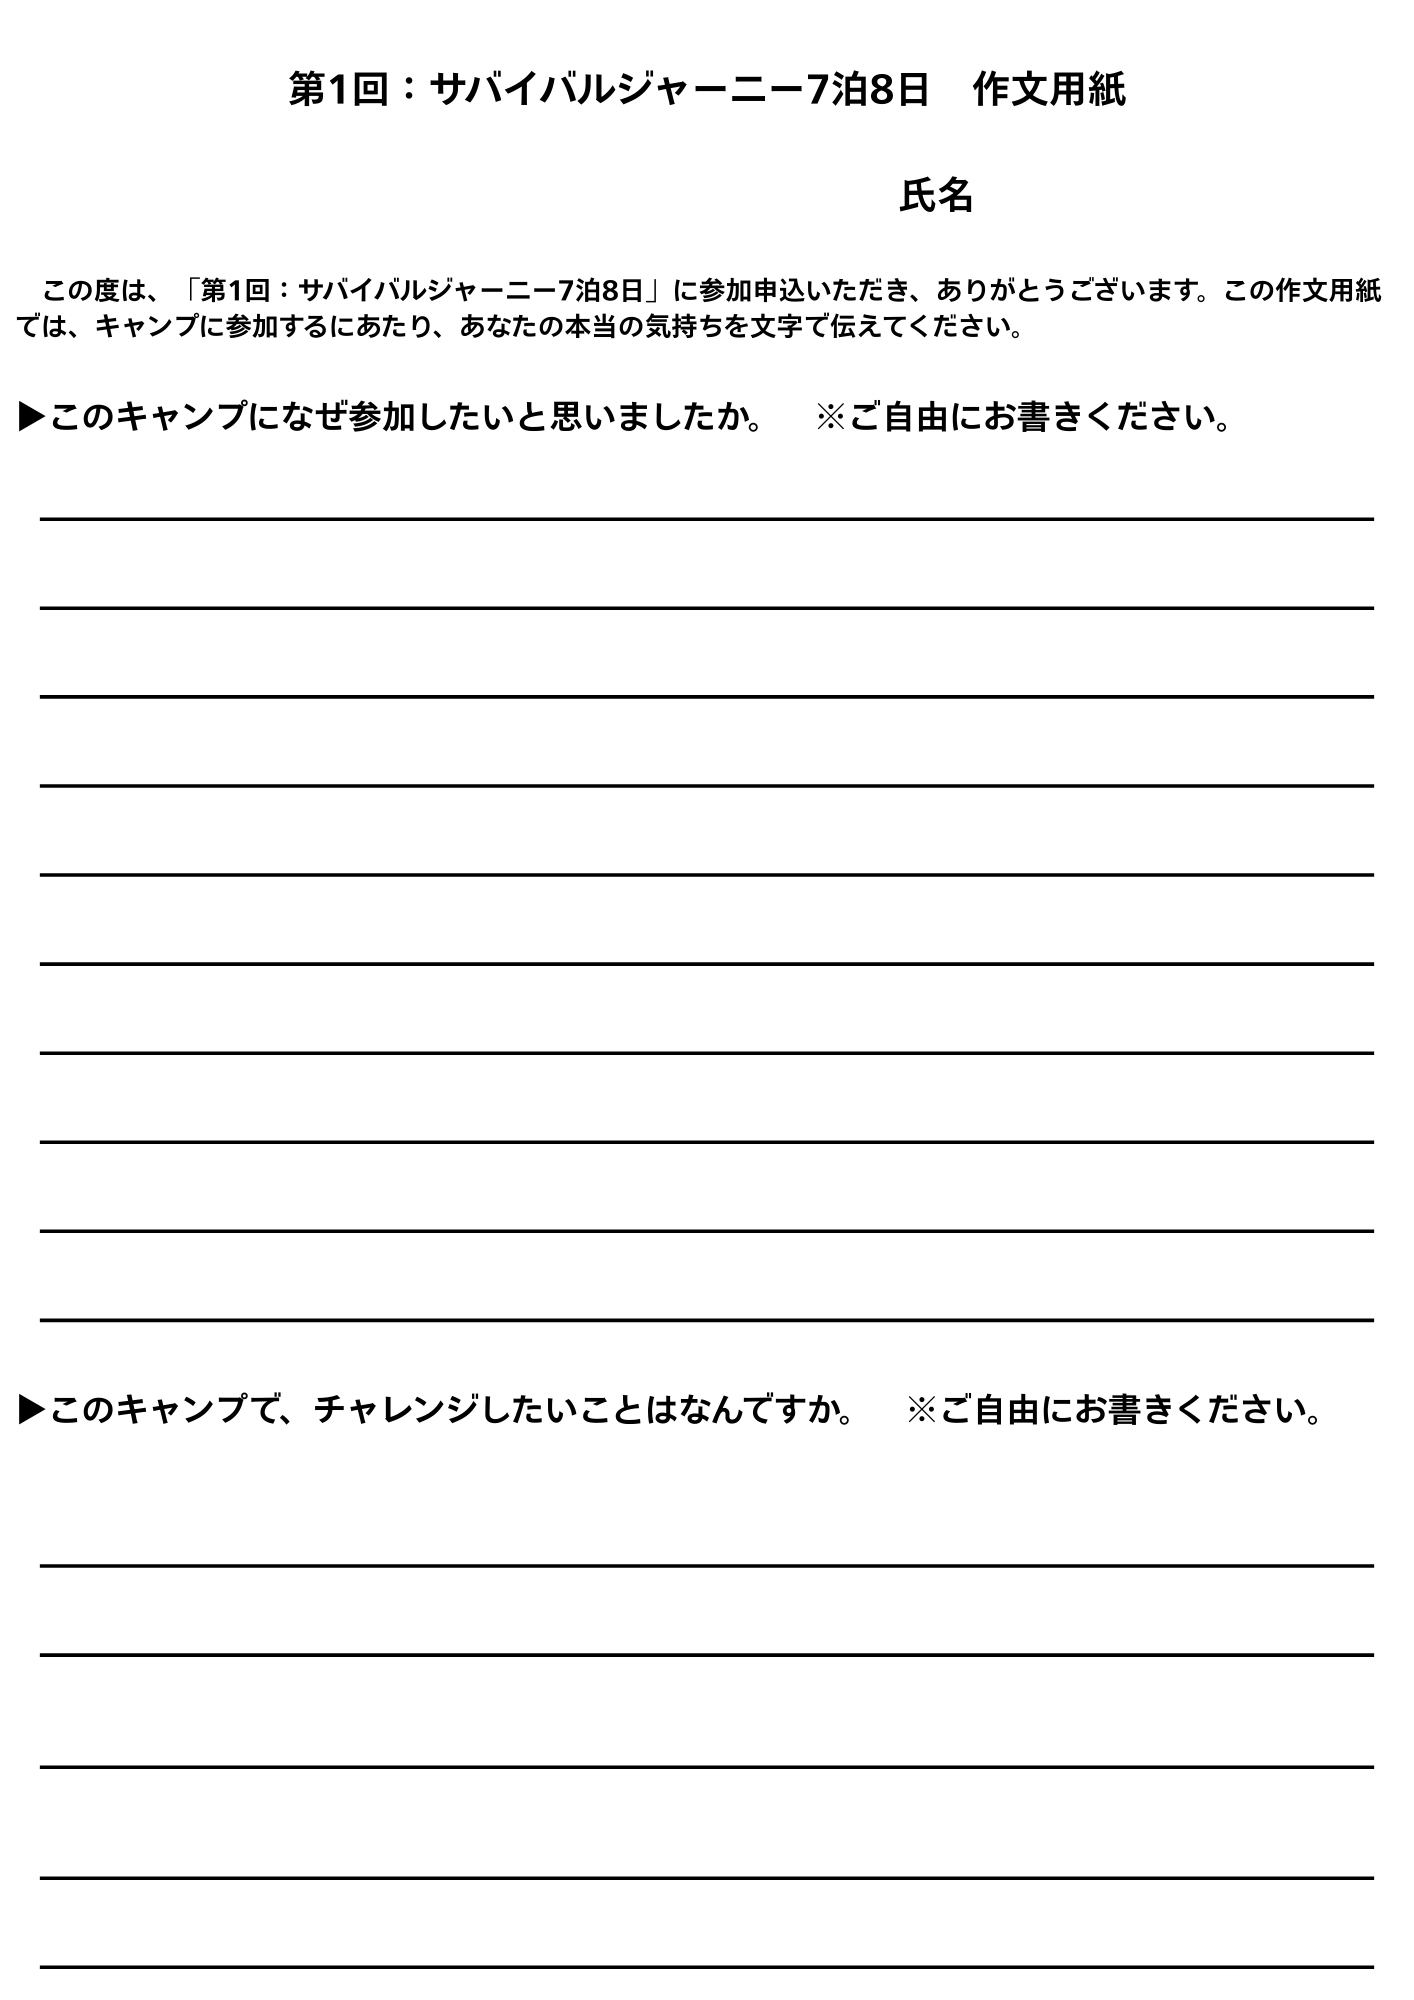 第1回：サバイバルジャーニー7泊8日　作文用紙
氏名
　この度は、「第1回：サバイバルジャーニー7泊8日」に参加申込いただき、ありがとうございます。この作文用紙
では、キャンプに参加するにあたり、あなたの本当の気持ちを文字で伝えてください。
▶このキャンプになぜ参加したいと思いましたか。　※ご自由にお書きください。
▶このキャンプで、チャレンジしたいことはなんですか。　※ご自由にお書きください。